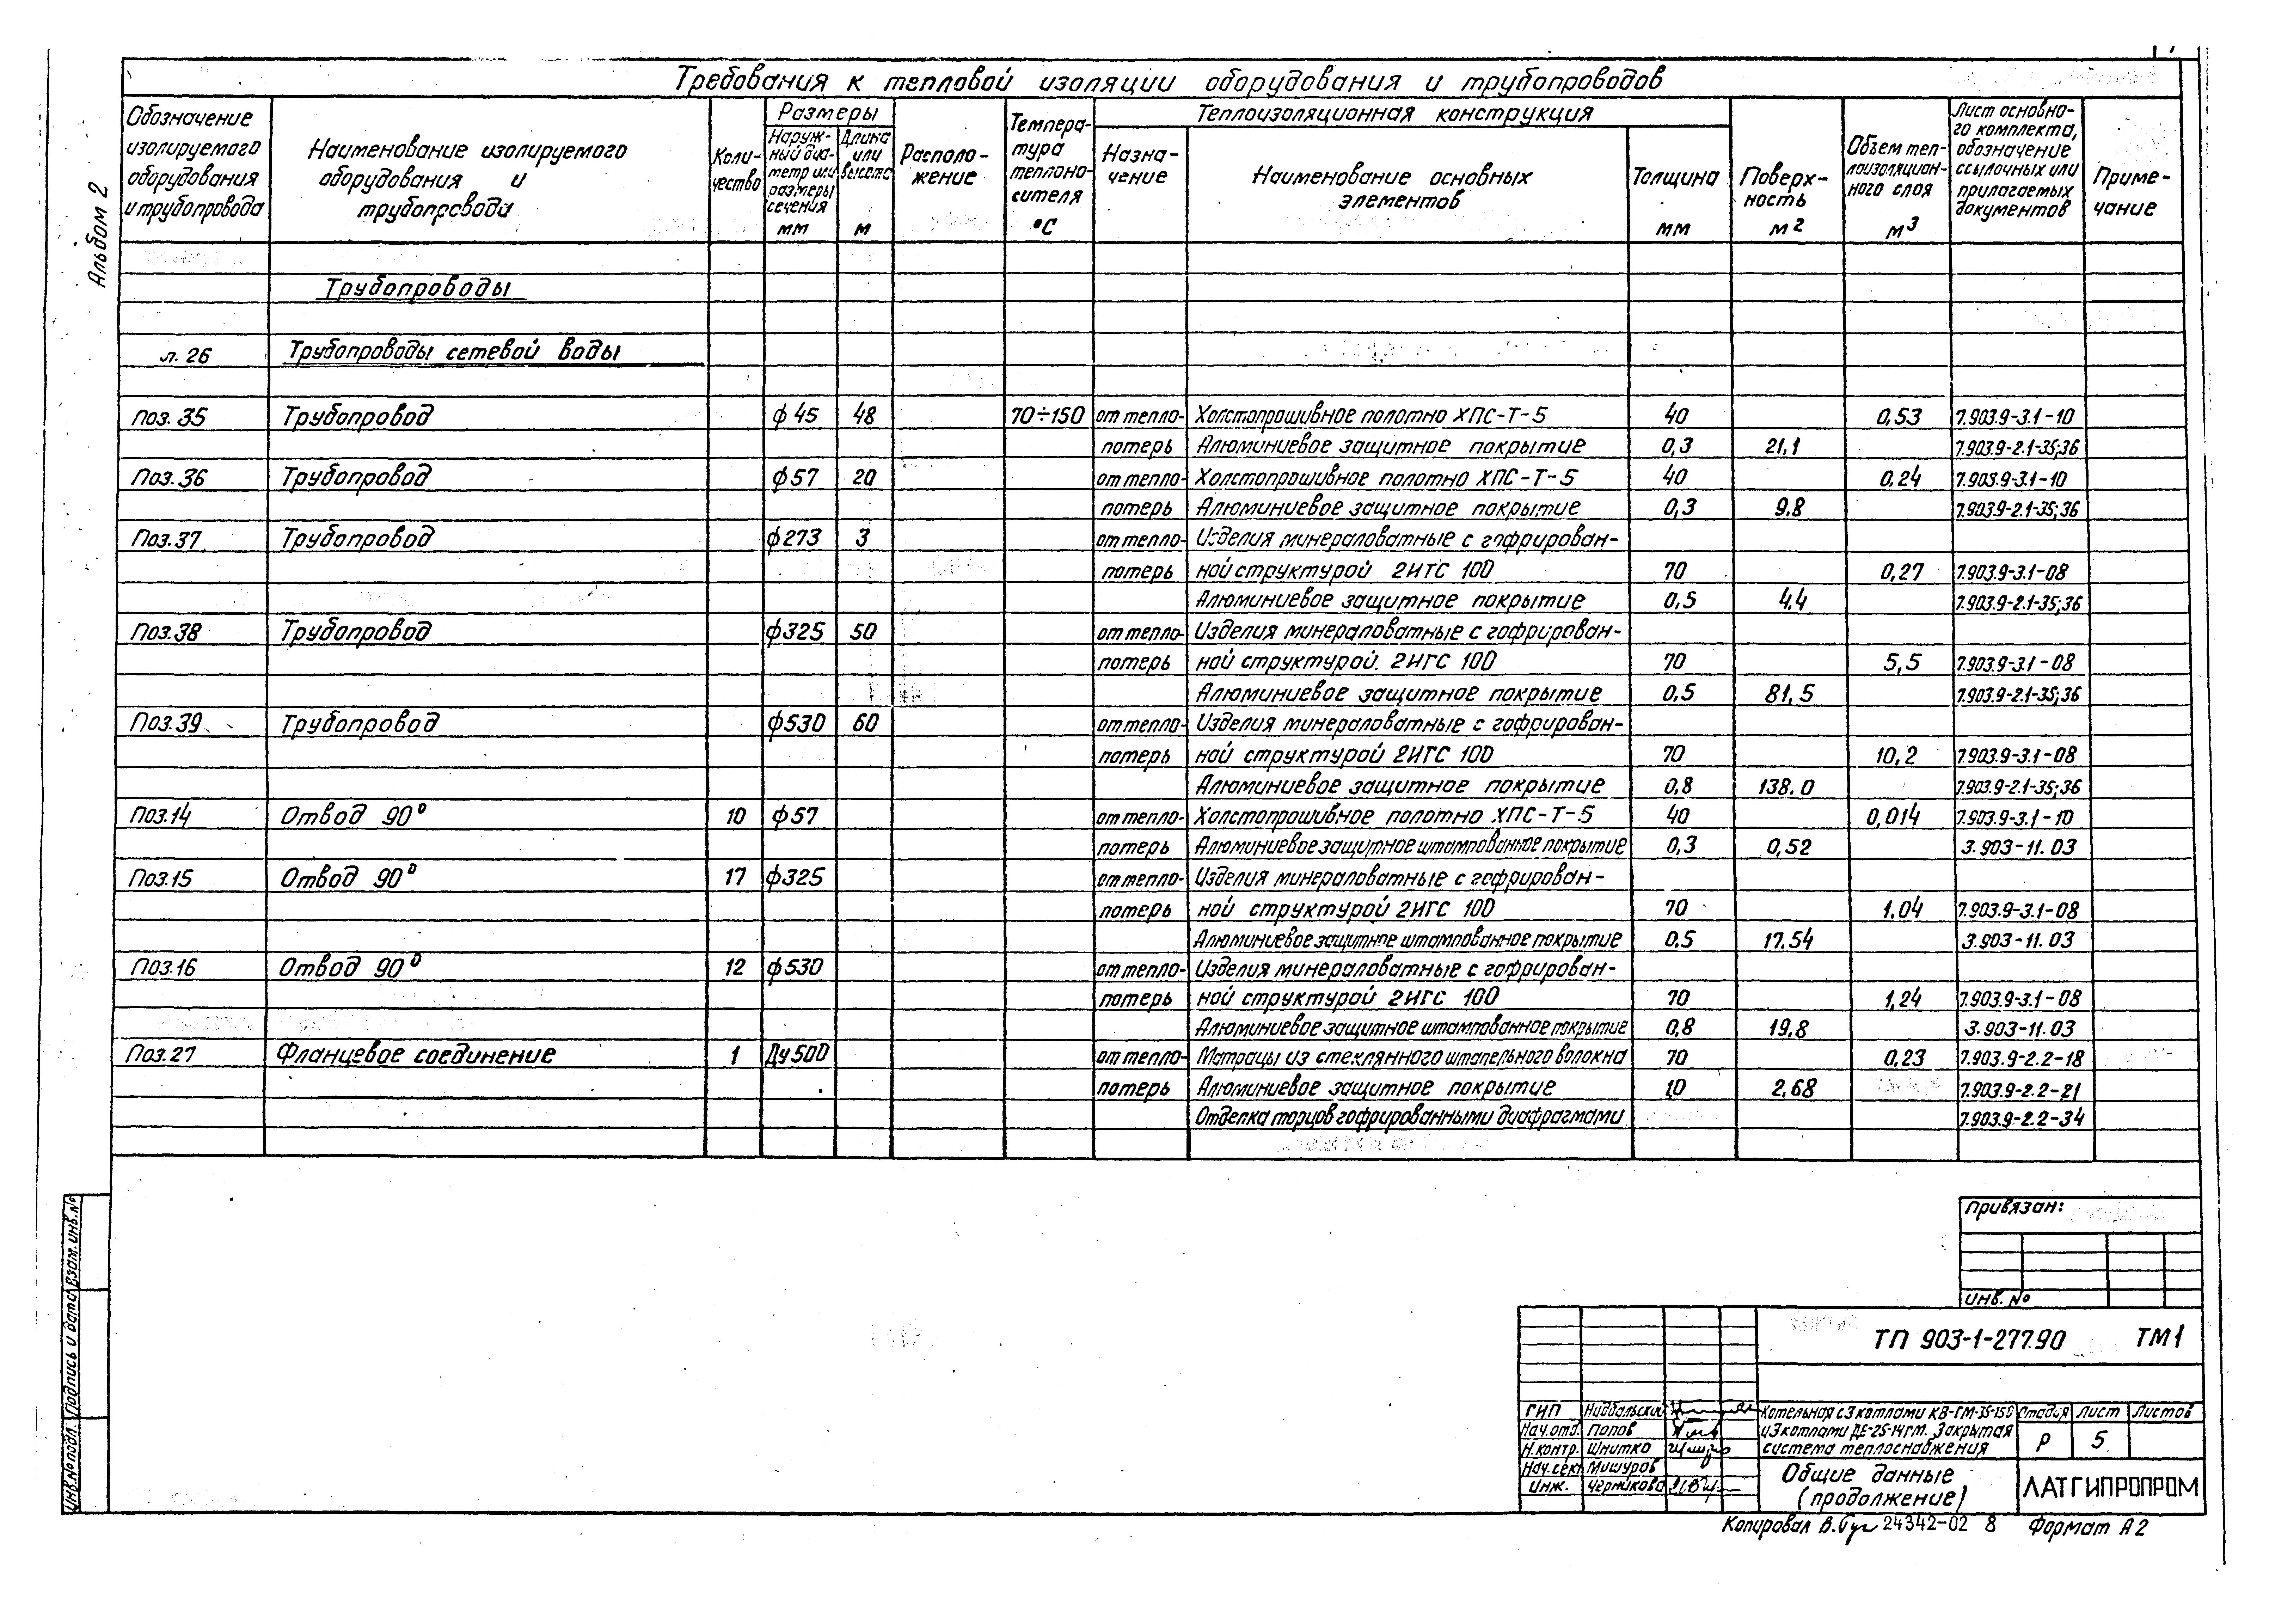 Альбом 2
Требования к тепловой изоляции оборудования и трубопроводов
Обозначение изолируемого оборудования и трубопровода
Наименование изолируемого оборудования и трубопровода
Коли-чество
Размеры
Наруж-ный диа-метр или размеры сечения мм
Длина или высота м
Располо-жение
Темпера-тура теплоно-сителя °С
Теплоизоляционная конструкция
Назна-чение
Наименование основных элементов
Толщина мм
Поверх-ность м2
Объем теп-лоизоляцион-ного слоя м3
Лист основно-го комплекта, обозначение ссылочных или прилагаемых документов
Приме-чание
Трубопроводы
л. 26 Трубопроводы сетевой воды
Поз. 35 Трубопровод ф45 48 70÷150 от тепло- Холстопрошивное полотно ХПС-Т-5 40 0,53 7.903.9-3.1-10
потерь Алюминиевое защитное покрытие 0,3 21,1 7.903.9-2.1-35;36
Поз. 36 Трубопровод ф57 20 от тепло- Холстопрошивное полотно ХПС-Т-5 40 0.24 7.903.9-3.1-10
потерь Алюминиевое защитное покрытие 0,3 9.8 7.903.9-2.1-35;36
Поз.37 Трубопровод ф273 3 от тепло- Изделия минераловатные с гофрирован-
потерь ной структурой 2ИГС 100 70 0,27 7.903.9-3.1-08
Алюминиевое защитное покрытие 0.5 4.4 7.903.9-2.1-35;36
Поз.38 Трубопровод ф325 50 от тепло- Изделия минераловатные с гофрирован-
потерь ной структурой. 2ИГС 100 70 5,5 7.903.9-3.1-08
Алюминиевое защитное покрытие 0,5 81,5 7.903.9-2.1-35;36
Поз.39 Трубопровод ф530 60 от тепло- Изделия минераловатные с гофрирован-
потерь ной структурой 2ИГС 100 70 10,2 7.903.9-3.1-08
Алюминиевое защитное покрытие 0,8 138.0 7.903.9-2.1-35;36
Поз.14 Отвод 90° 10 ф57 от тепло- Холстопрошивное полотно ХПС-Т-5 40 0,014 7.903.9-3.1-10
потерь Алюминиевое защитное штампованное покрытие 0,3 0,52 3.903-11.03
Поз.15 Отвод 90° 17 ф325 от тепло- Изделия минераловатные с гофрирован-
потерь ной структурой 2ИГС 100 70 1.04 7.903.9-3.1-08
Алюминиевое защитное штампованное покрытие 0.5 17.54 3.903-11.03
Поз.16 Отвод 90° 12 ф530 от тепло- Изделия минераловатные с гофрирован-
потерь ной структурой 2ИГС 100 70 1,24 7.903.9-3.1-08
Алюминиевое защитное штампованное покрытие 0,8 19.8 3.903-11.03
Поз.27 Фланцевое соединение 1 Ду500 от тепло- Матрацы из стеклянного штапельного волокна 70 0,23 7.903.9-2.2-18
потерь Алюминиевое защитное покрытие 1,0 2,68 7.903.9-2.2-21
Отделка торцов гофрированными диафрагмами 7.903.9-2.2-34
Привязан:
Инв. №
ТП 903-1-277.90 ТМ1
ГИП
Нач.отд. Попов
Н.контр. Шнитко
Нач.сект Мишуров
Инж. Черникова
Котельная с 3 котлами КВ-ГМ-35-150
и 3 котлами ДЕ-25-14ГМ. Закрытая
система теплоснабжения
Стадия Лист Листов
Р 5
Общие данные
(продолжение)
ЛАТГИПРОПРОМ
Копировал 24342-02 8 Формат А2
Инв.№ подл. Подпись и дата Взам.инв.№